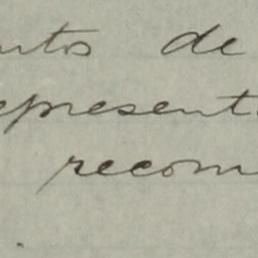 ntos de
epresent
recom